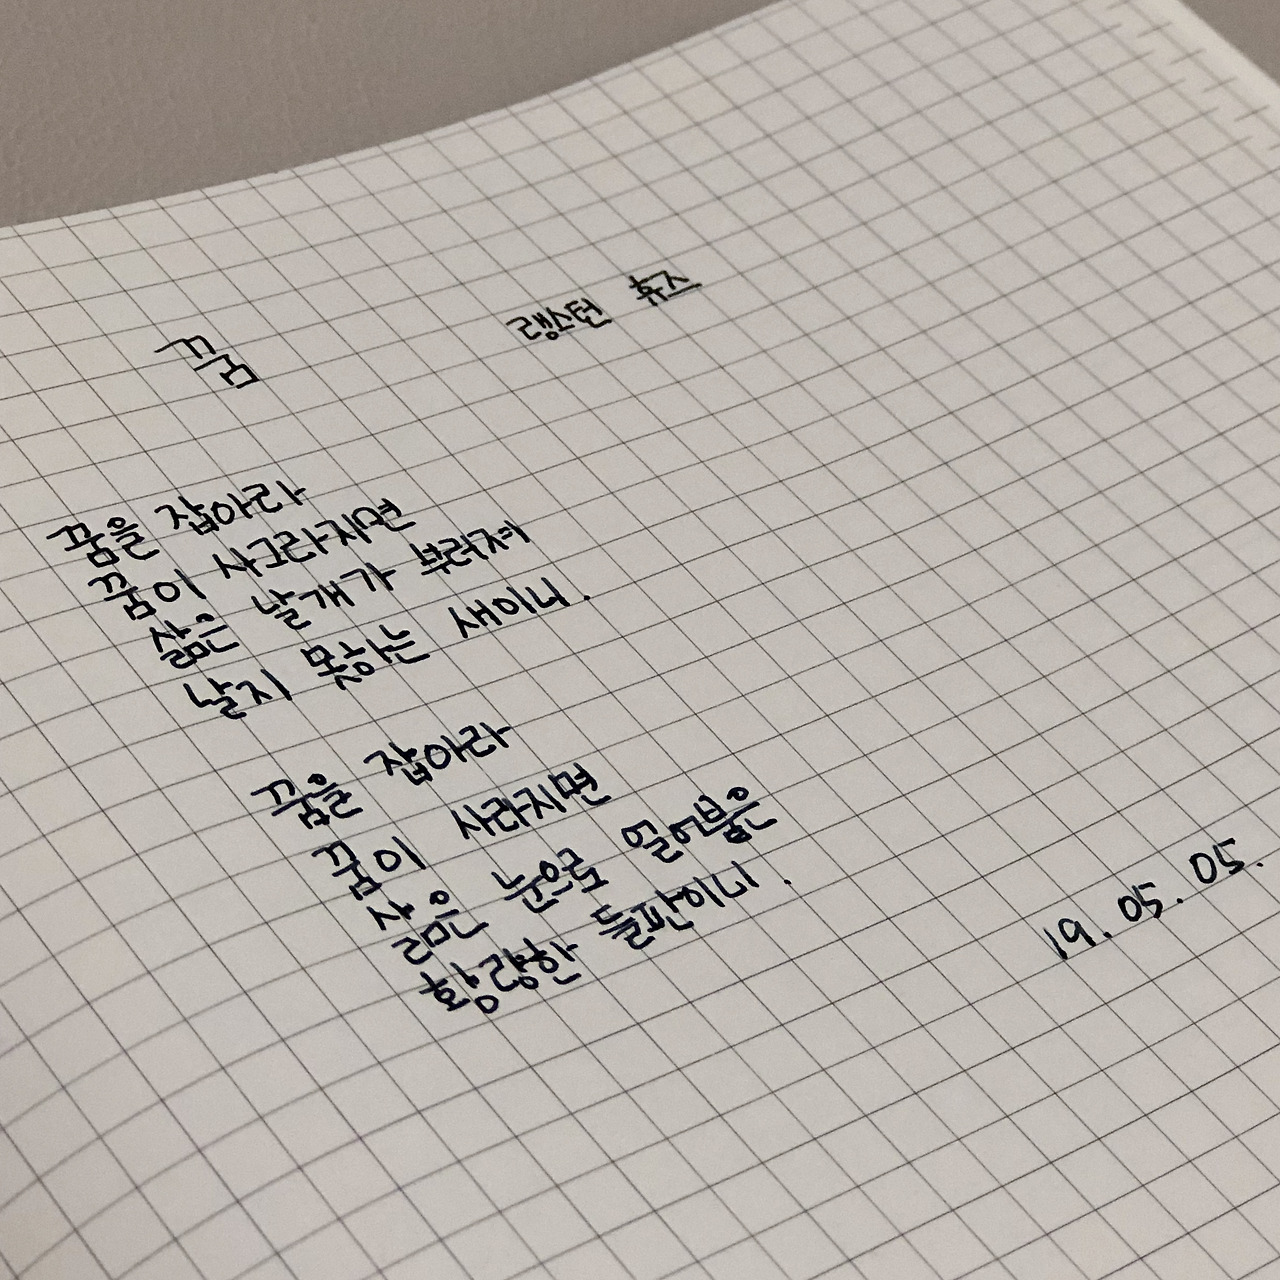 꿈
랭스턴 휴즈
꿈을 잡아라
꿈이 사그라지면
삶은 날개가 부러져
날지 못하는 새이니.
꿈을 잡아라
꿈이 사라지면
삶은 눈으로 얼어붙은
황량한 들판이니.
19. 05. 05.